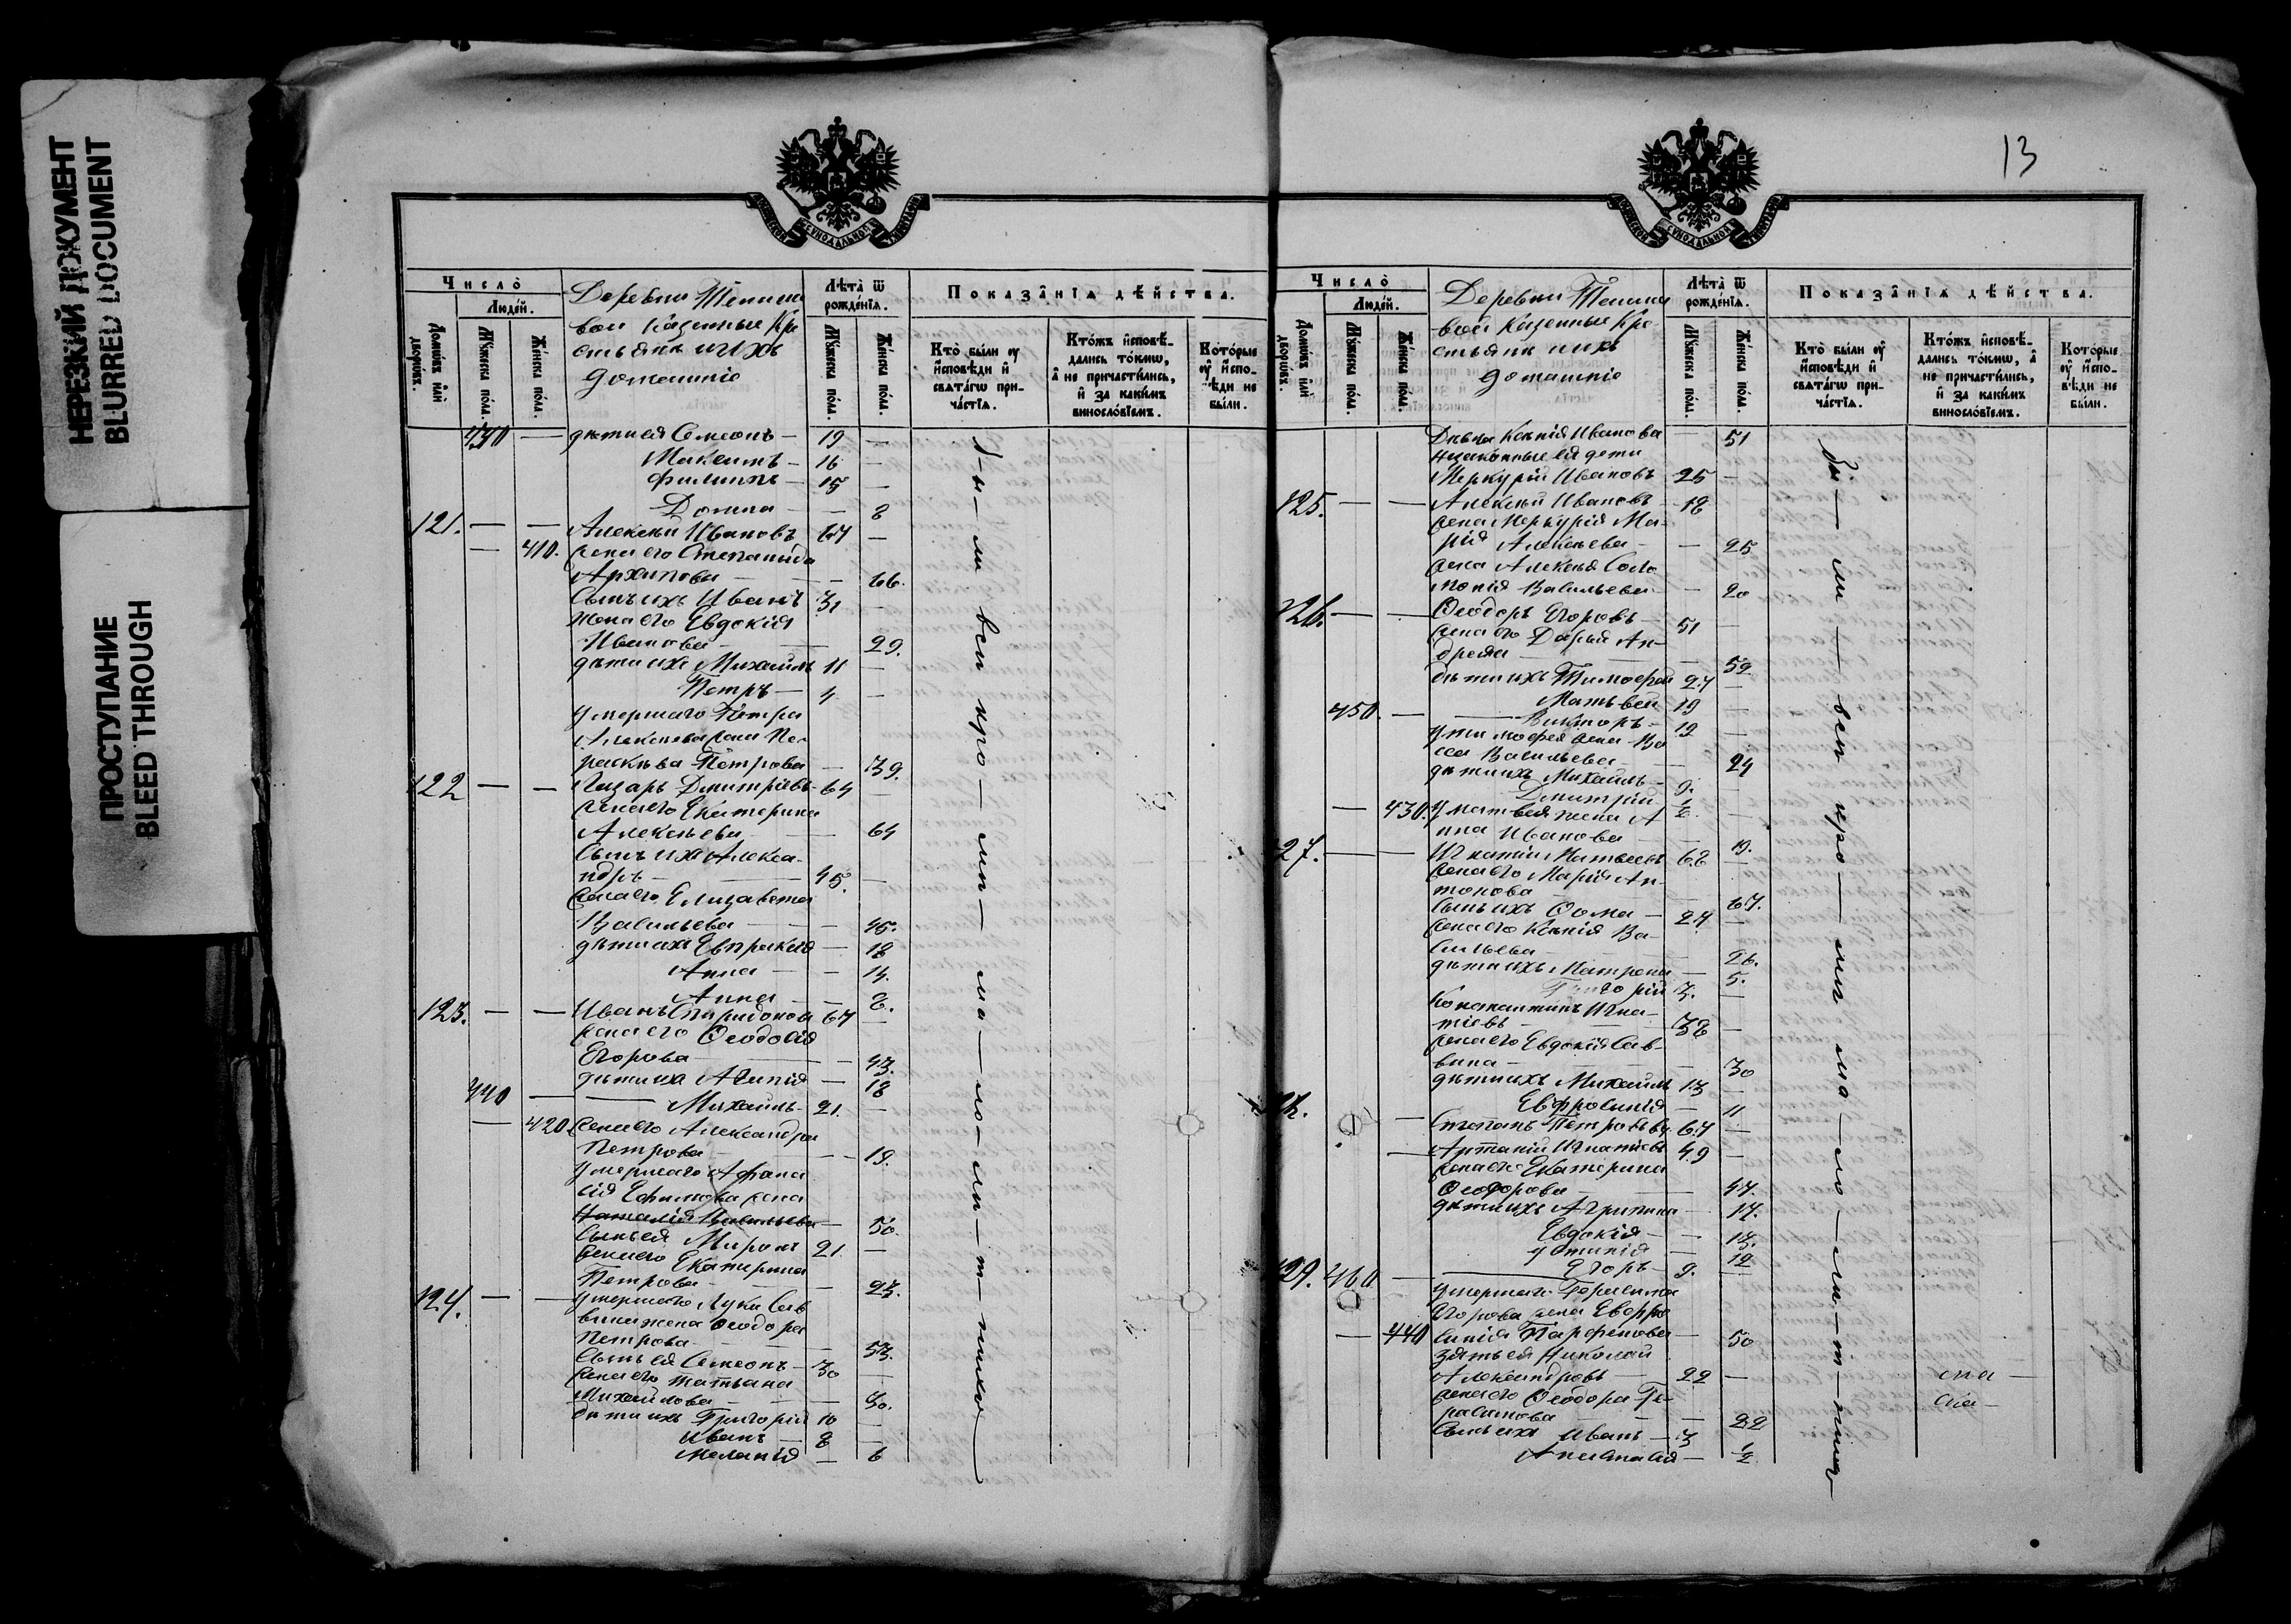 НЕРЕЗКИЙ ДОКУМЕНТ
BLURRED DOCUMENT
ПРОСТУПАНИЕ
BLEED THROUGH
Число̀
Людей.
Домѡвъ или дворѡвъ.
Мужеска пола.
Женска пола.
Деревни
вой казенные Кре
стьяне и ихъ
домашніе
Лѣта ѿ рожденїѧ.
Мужеска пола.
Женска пола.
Показанїѧ дѣйства.
Кто̀ были ѹ исповѣди и свѧтагѡ причастїѧ.
Ктожъ исповѣдались токмѡ, а не причастились, и за какимъ винословїемъ.
Которые ѹ исповѣди не были.
430 — дѣти ея Симеонъ — 19 —
Максимъ — 16 —
Филиппъ — 15 —
Домна — — 8
121. — — Алексѣй Ивановъ 67 —
— 410. жена его Степанида
Архипова — — 66.
Сынъ ихъ Иванъ 31 —
жена его Евдокія
Иванова — — 29.
дѣти ихъ Михаилъ 11 —
Петръ — 4 —
умершаго Петра
Алексѣева жена Па-
раскѣва Петрова — 39.
122 — — Лазарь Дмитріевъ 64 —
жена его Екатерина
Алексѣева — — 64
Сынъ ихъ Алекса-
ндръ — 45. —
жена его Елизавета
Васильева — — 45.
дѣти ихъ Евпраксія — 18
Анна — — 14.
Анна — — 8.
123. — — Иванъ Спиридонов 67 —
жена его Ѳеодосія
Егорова — — 43.
дѣти ихъ — 18
440 — — Михаилъ — 21. —
— 420. жена его Александра
Петрова — — 19.
умершаго Афана
сія Ефимова жена
Наталія Васильева — 50.
Сынъ ея Миронъ 21. —
жена его Екатерина
Петрова — — 23.
124. — — умершаго Луки Сав
вина жена Ѳеодора
Петрова — — 53.
Сынъ ея Симеонъ — 30 —
жена его Татьяна
Михайлова — — 30.
дѣти ихъ Григорій 10 —
Иванъ — 8 —
Меланія — 6
13
Число̀
Людей.
Домѡвъ или дворѡвъ.
Мужеска пола.
Женска пола.
Деревни
вой казенные Кре
стьяне и ихъ
домашніе
Лѣта ѿ рожденїѧ.
Мужеска пола.
Женска пола.
Показанїѧ дѣйства.
Кто̀ были ѹ исповѣди и свѧтагѡ причастїѧ.
Ктожъ исповѣдались токмѡ, а не причастились, и за какимъ винословїемъ.
Которые ѹ исповѣди не были.
Дѣвка Ксенія Иванова — 51
незаконные ея дети
Меркурій Ивановъ 25 —
125. — — Алексѣй Ивановъ — 18
жена Меркурія Ма-
рія Алексѣева — — 25
жена Алексѣя Соло
монія Васильева — 20
126. — — Ѳеодоръ Егоровъ — 51 —
жена его Дарья Ан-
дреева — — 52
дѣти ихъ Тимоѳей 27 —
Матвей 19 —
450. — — Викторъ — 12 —
у Тимоѳея жена Ва
сса Васильева — 24
дѣти ихъ Михаилъ — 9. —
Дмитрій ½ —
— 430. у Матвея жена А
нна Иванова — 19.
127. — — Игнатій Матвеевъ 68 —
жена его Марія Ан-
тонова — — 67.
Сынъ ихъ Ѳома — 27 —
жена его Ксенія Ва-
сильева — — 26.
дѣти ихъ Матрона — 5.
Григорій 3. —
Константинъ Игна-
тіевъ — 38 —
жена его Евдокія Сав-
вина — — 30
дѣти ихъ Михаилъ 13 —
Евфросинія — 11
Степанъ Петровъ 67 —
Антоній Игнатіевъ 49 —
жена его Екатерина
Ѳеодорова — — 47.
дѣти ихъ Агрипина — 17.
Евдокія — — 13.
Устинія — 12
129. 460. — Егоръ — 9. —
умершаго Герасима
Егорова жена Евфро
— 440 синія Парфенова — 50
зять ея Николай
Александровъ — 22 —
жена его Ѳеодора Ге-
расимова — — 22
Сынъ ихъ Иванъ — 3 —
Анастасія — ½